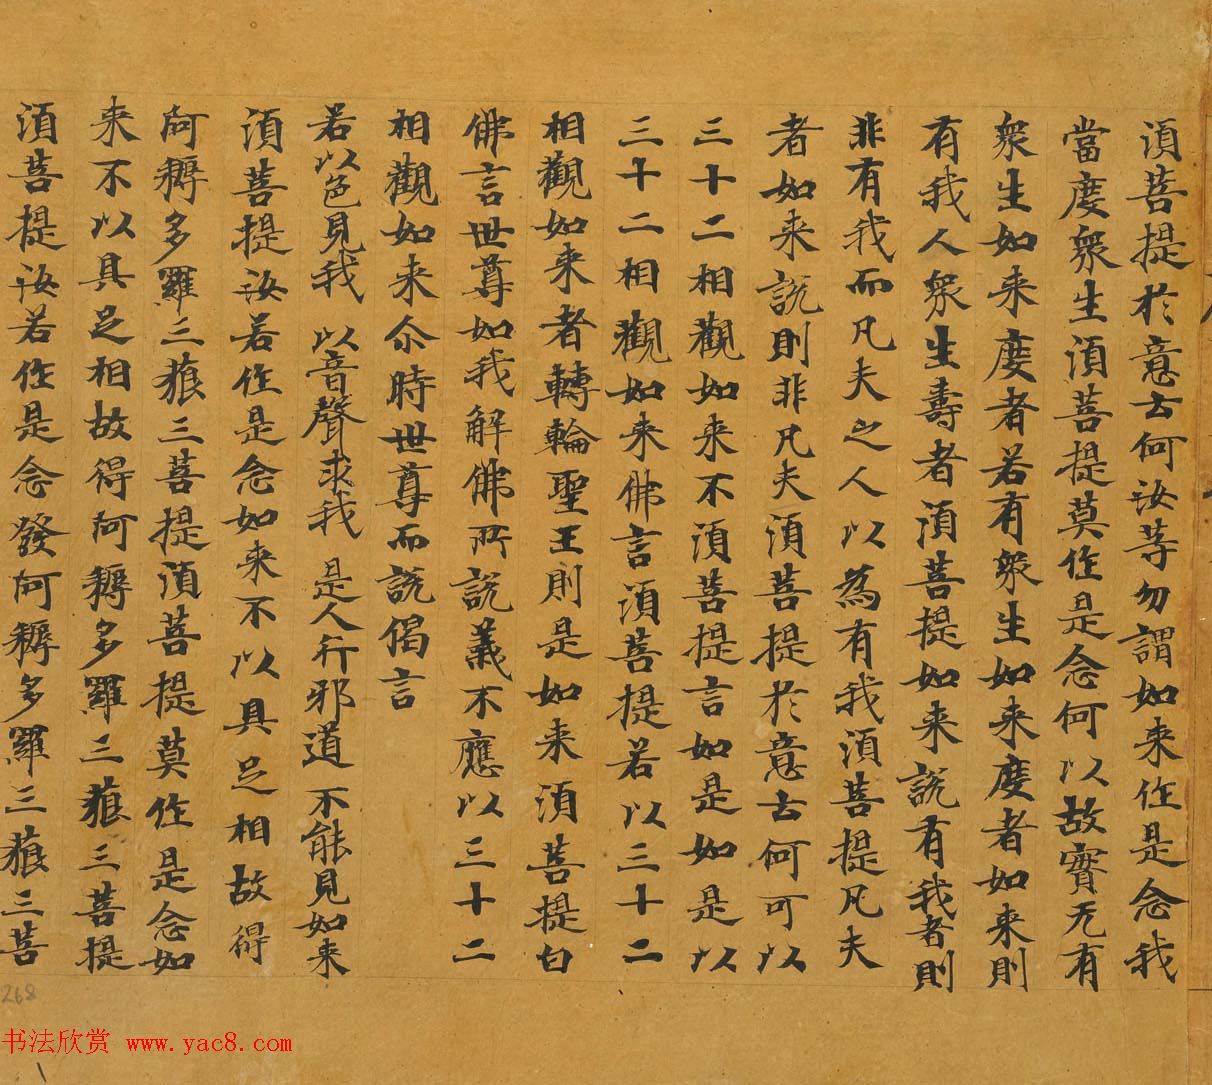 湏菩提於意云何汝等勿謂如来作是念我
當度衆生湏菩提莫作是念何以故實无有
衆生如来度者若有衆生如来度者如来則
有我人衆生壽者湏菩提如来說有我者則
非有我而凡夫之人以為有我湏菩提凡夫
者如来說則非凡夫湏菩提於意云何可以
三十二相觀如来不湏菩提言如是如是以
三十二相觀如来佛言湏菩提若以三十二
相觀如来者轉輪聖王則是如来湏菩提白
佛言世尊如我解佛所說義不應以三十二
相觀如来尒時世尊而說偈言
若以色見我 以音聲求我 是人行邪道 不能見如来
湏菩提汝若作是念如来不以具足相故得
阿耨多羅三藐三菩提湏菩提莫作是念如
来不以具足相故得阿耨多羅三藐三菩提
湏菩提汝若作是念發阿耨多羅三藐三菩
268
书法欣赏 www.yac8.com